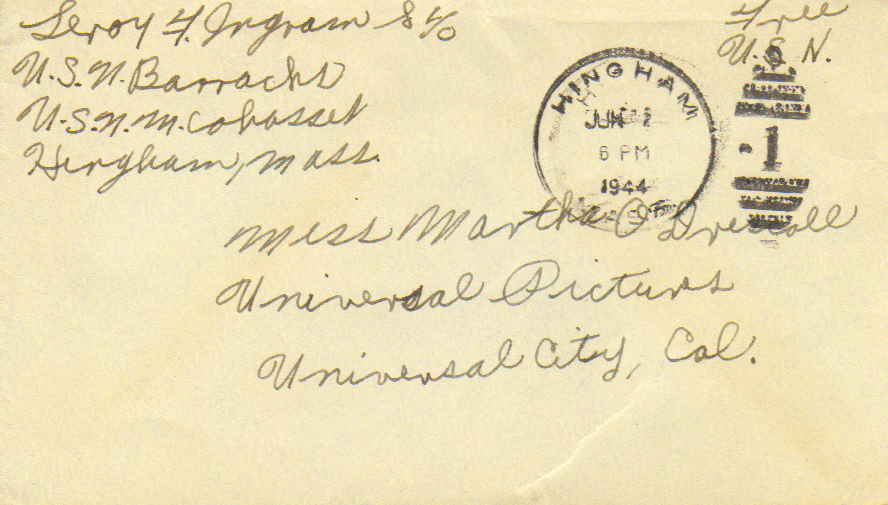 Leroy F. Ingram S 1/c
U.S.N. Barracks
U.S.N.M. Cohasset
Hingham, Mass.
Free
U.S.N.
HINGHAM
JUN 2
6 PM
1944
MASS
1
Miss Martha O Driscoll
Universal Picturs
Universal City, Cal.